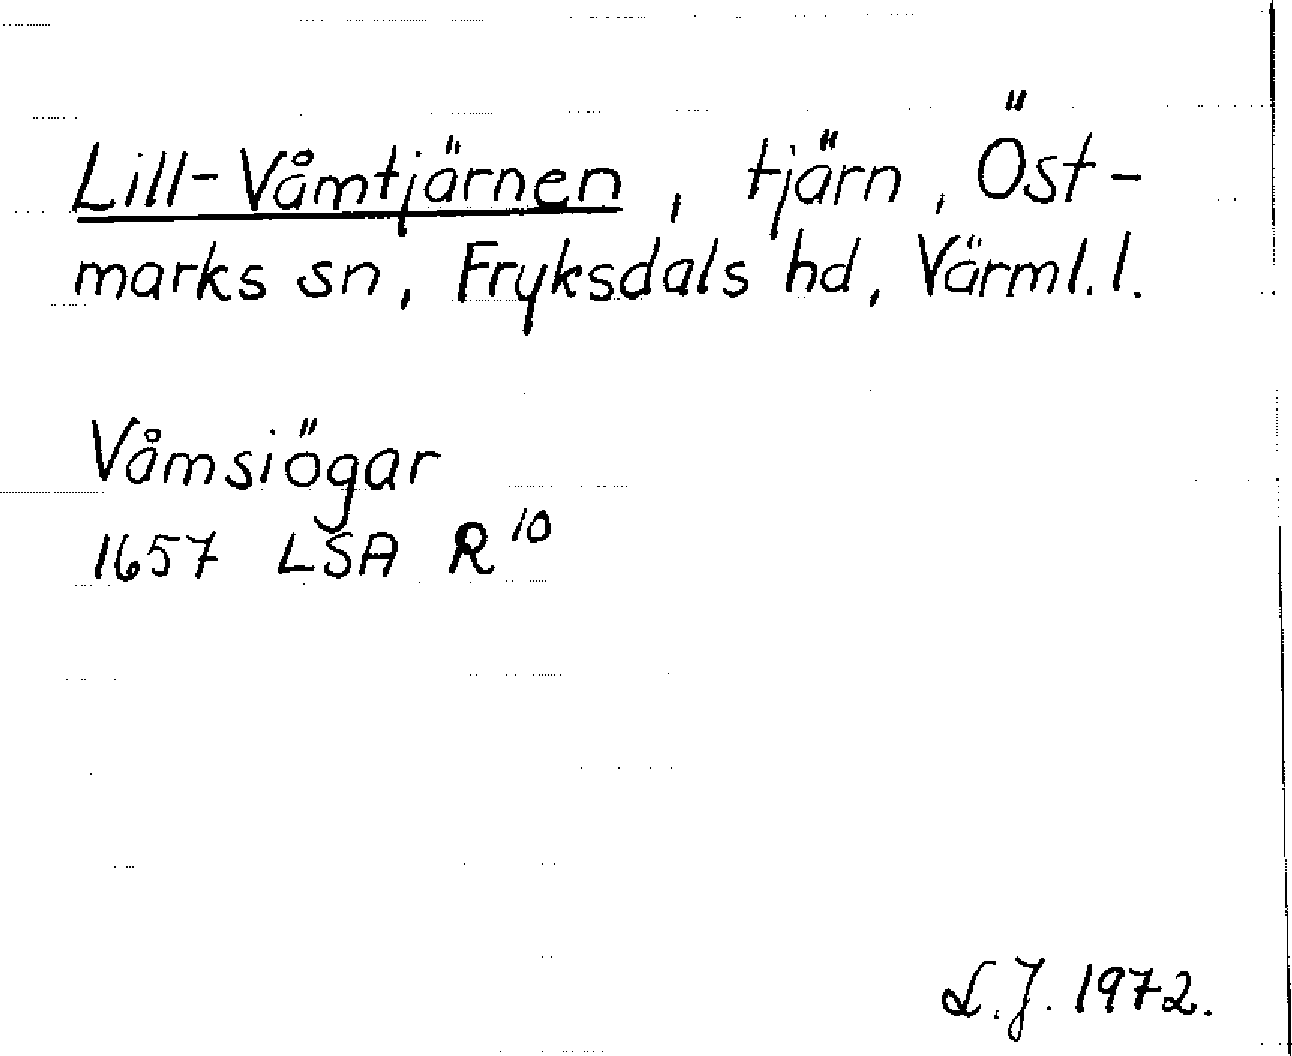 Lill-Våmtjärnen, tjärn, Öst-
marks sn, Fryksdals hd, Värml. l.
Våmsiögar
1657 LSA R 10
L.J. 1972.